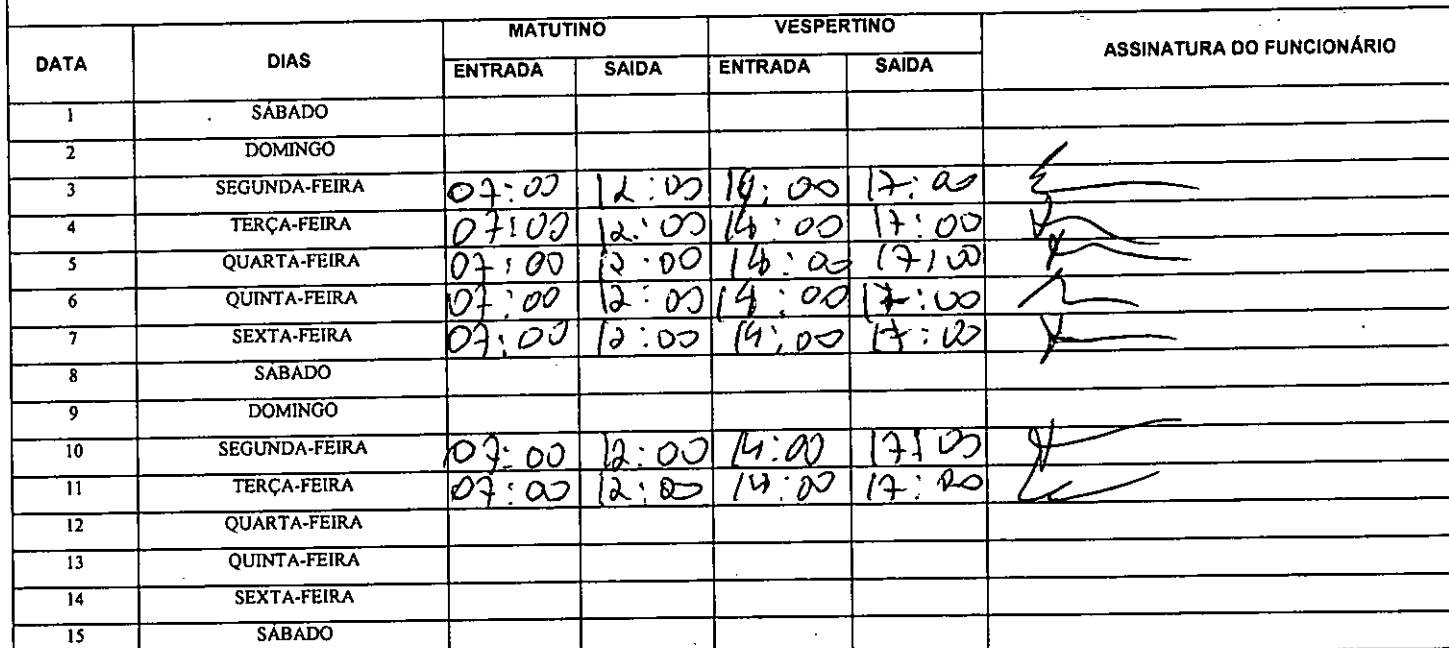 MATUTINO VESPERTINO
DATA DIAS ENTRADA SAIDA ENTRADA SAIDA ASSINATURA DO FUNCIONÁRIO
1 SÁBADO
2 DOMINGO
3 SEGUNDA-FEIRA 07:00 12:00 14:00 17:00
4 TERÇA-FEIRA 07:00 12:00 14:00 17:00
5 QUARTA-FEIRA 07:00 12:00 14:00 17:00
6 QUINTA-FEIRA 07:00 12:00 14:00 17:00
7 SEXTA-FEIRA 07:00 12:00 14:00 17:00
8 SÁBADO
9 DOMINGO
10 SEGUNDA-FEIRA 07:00 12:00 14:00 17:00
11 TERÇA-FEIRA 07:00 12:00 14:00 17:00
12 QUARTA-FEIRA
13 QUINTA-FEIRA
14 SEXTA-FEIRA
15 SÁBADO